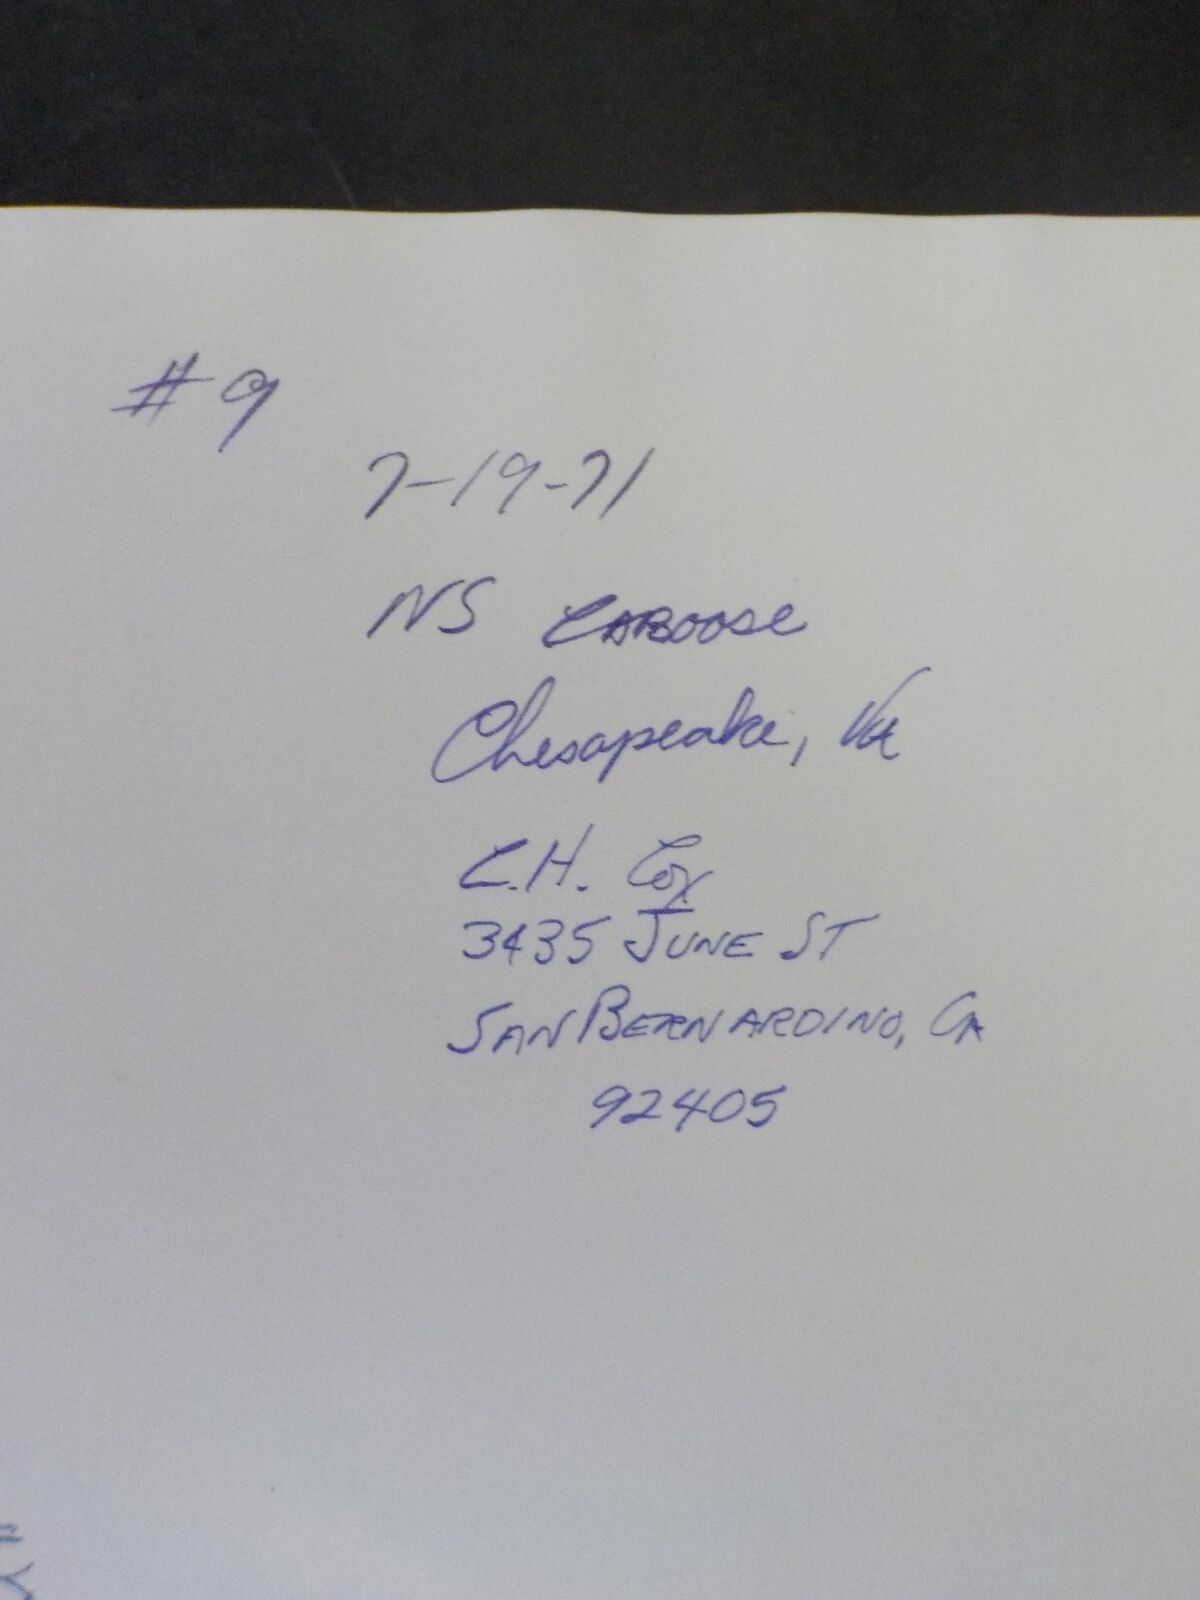 #9
7-19-71
NS CABOOSE
Chesapeake, Va
C.H. Cox
3435 JUNE ST
SAN BERNARDINO, CA
92405